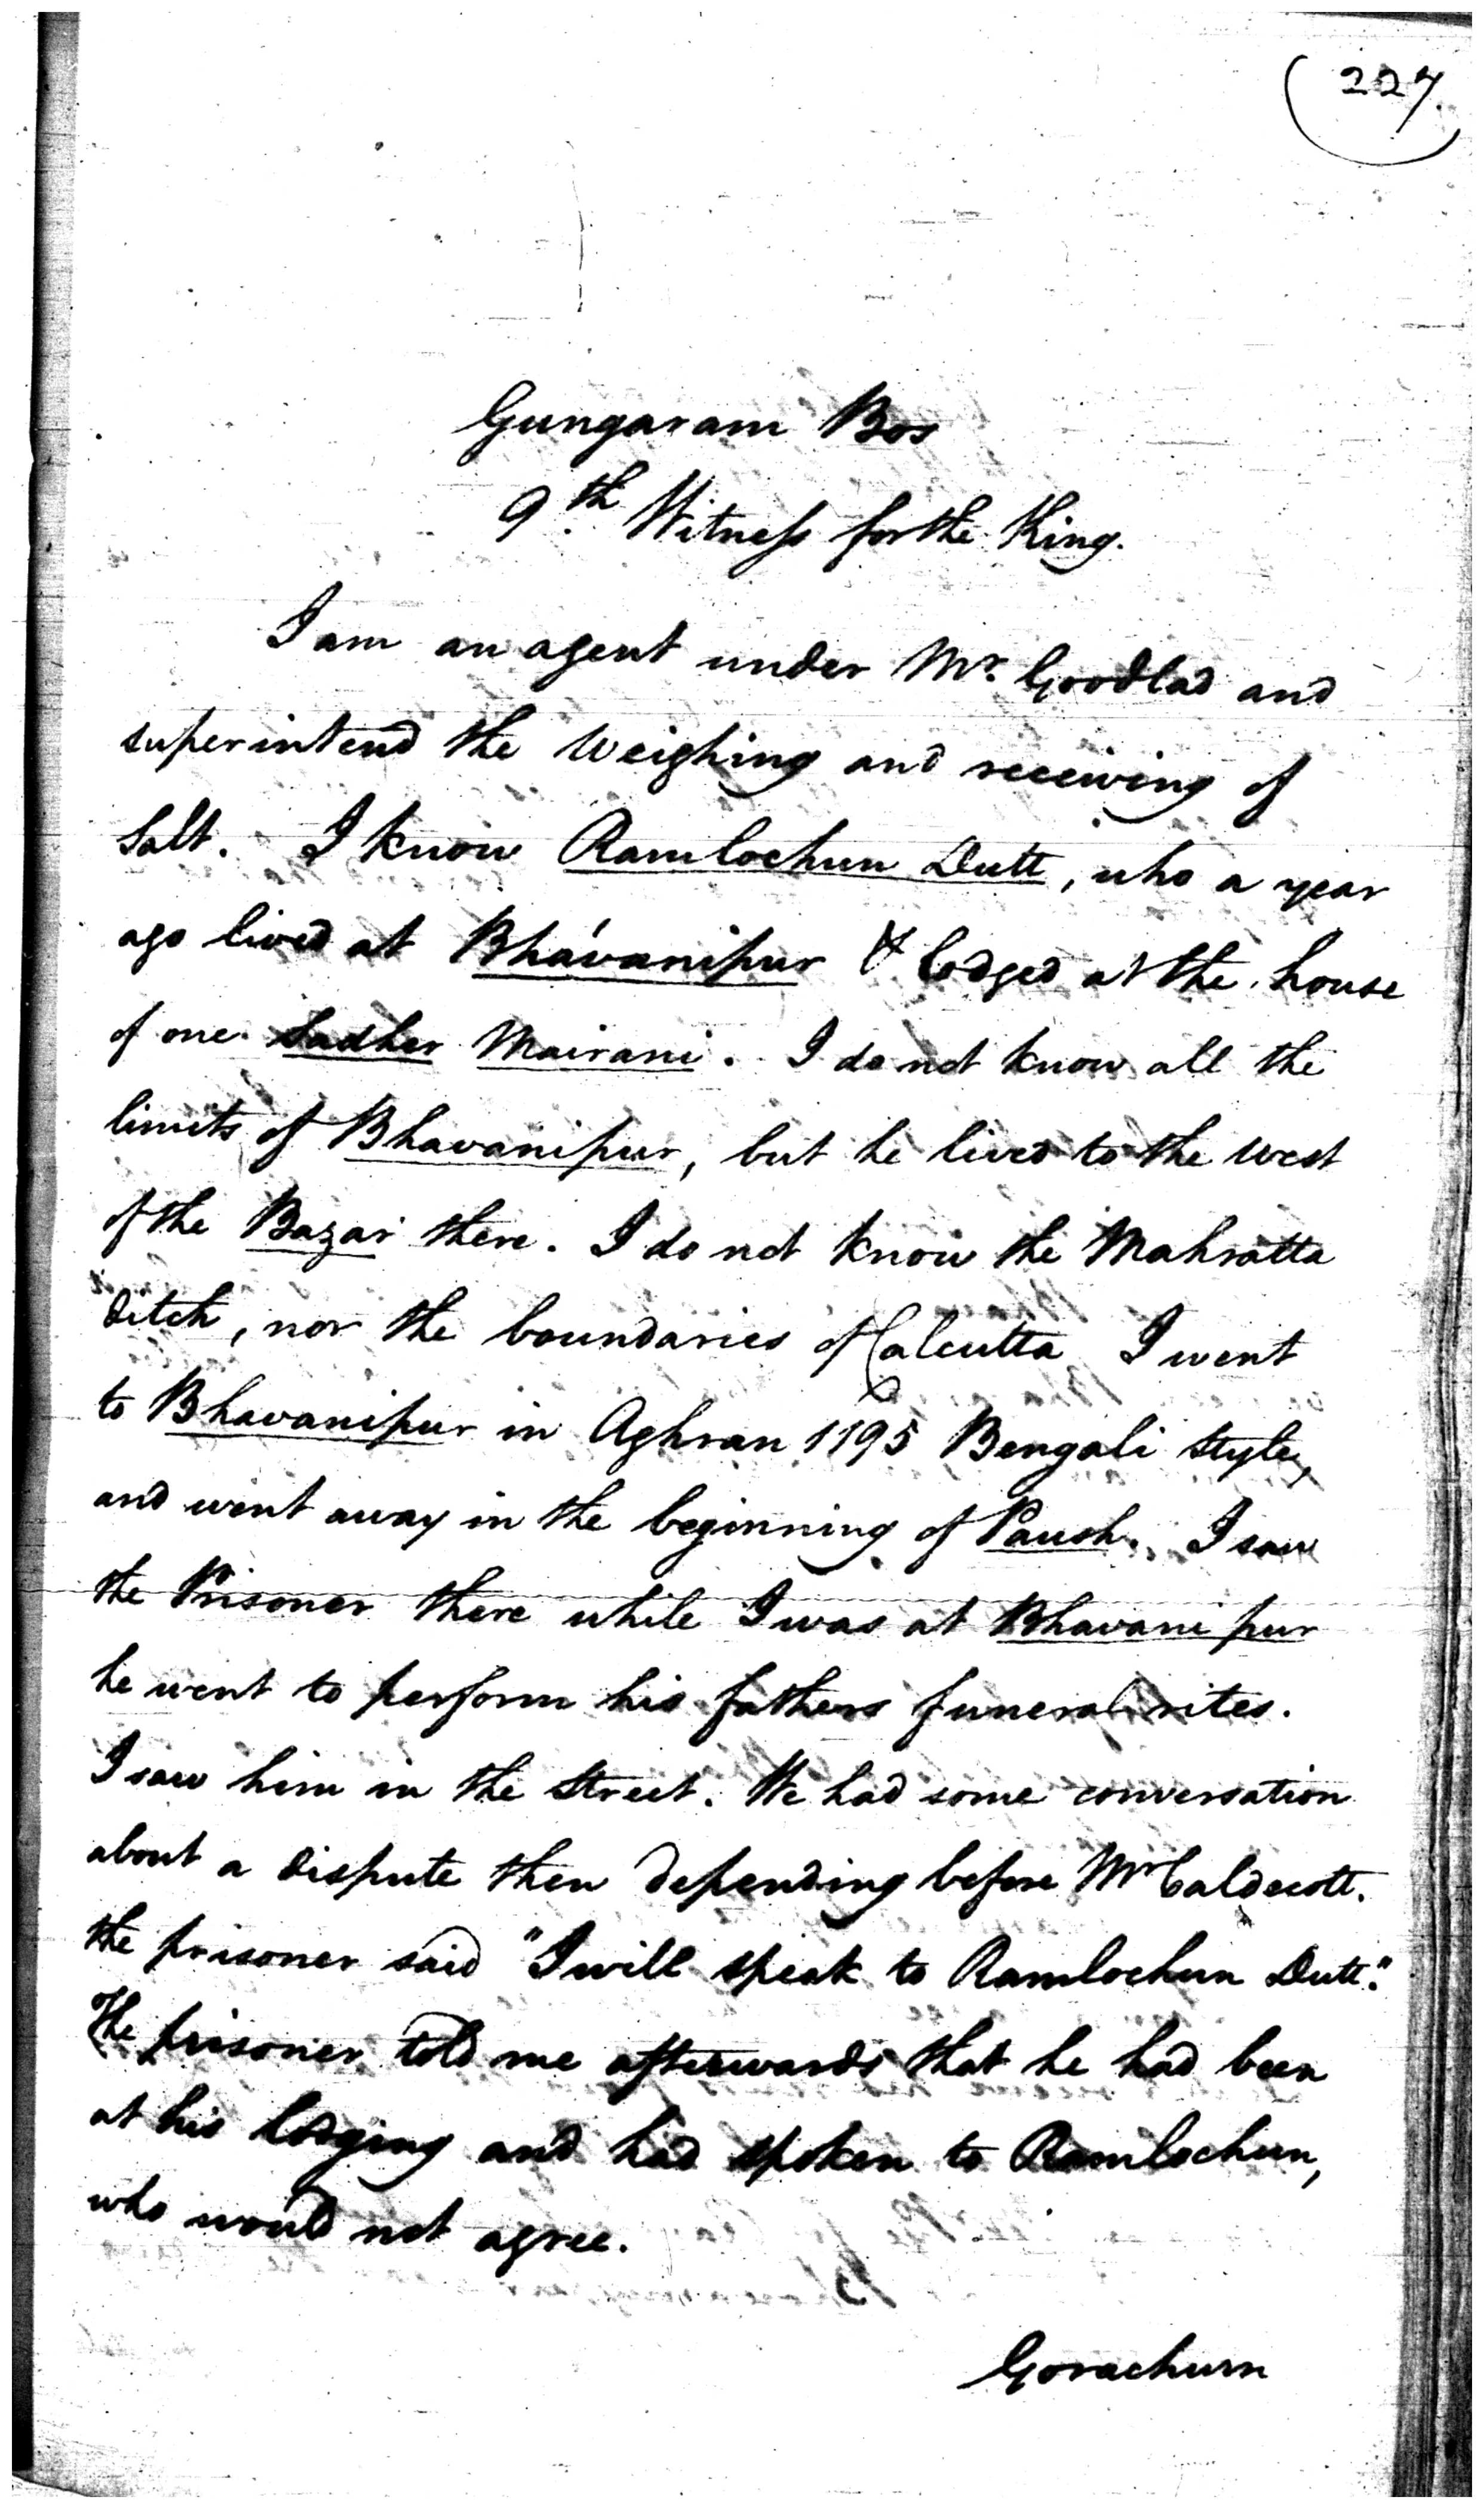 227
Gungaram Bos
9th Witness for the King.
I am an agent under Mr. Goodlad and
superintend the Weighing and receiving of
Salt. I know Ramlochun Dutt, who a year
ago lived at Bhávanipur & lodged at the house
of one Sadher Mairani. I do not know all the
limits of Bhavanipur, but he lived to the West
of the Bazar there. I do not know the Mahratta
ditch, nor the boundaries of Calcutta I went
to Bhavanipur in Aghran 1195 Bengali style,
and went away in the beginning of Paush. I saw
the Prisoner there while I was at Bhavanipur
he went to perform his fathers funeral rites.
I saw him in the Street. We had some conversation
about a dispute then depending before Mr Caldecott.
the prisoner said "I will speak to Ramlochun Dutt."
The prisoner told me afterwards that he had been
at his lodging and had spoken to Ramlochun,
who would not agree.
Gorachurn